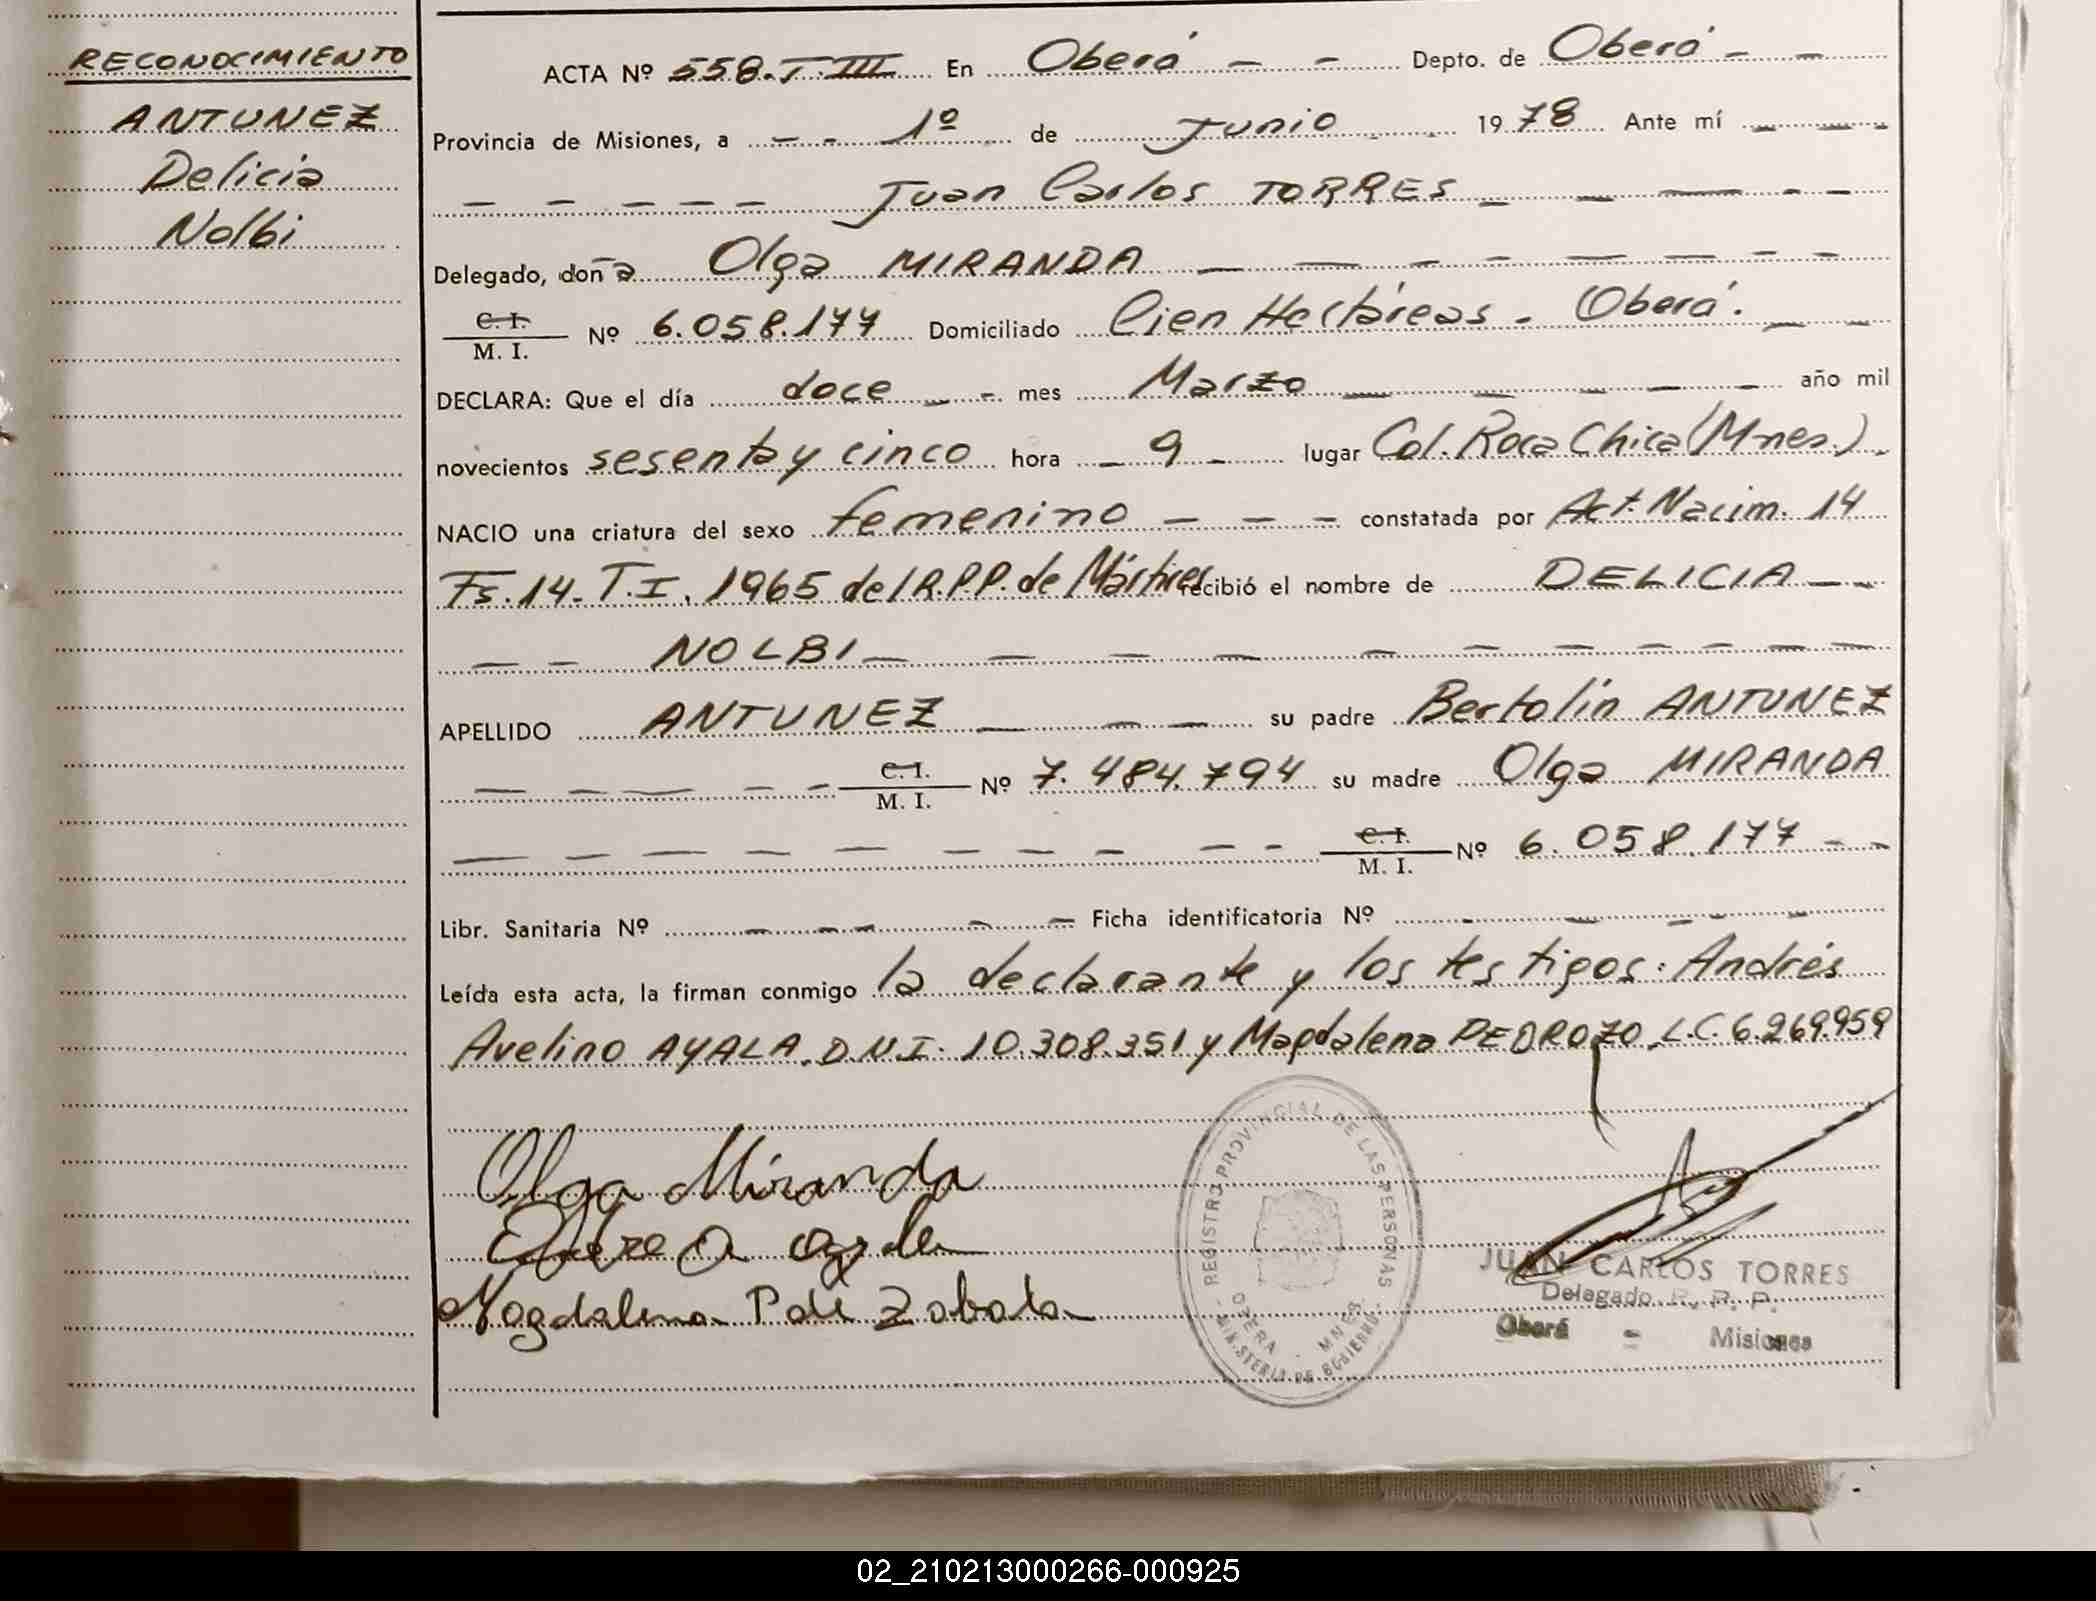 RECONOCIMIENTO
ANTUNEZ
Delicia
Nolbi
ACTA Nº 558.T.III En Oberá - - Depto. de Oberá - -
Provincia de Misiones, a - - 1º de Junio 1978 Ante mí - - -
- - - - - Juan Carlos TORRES - - - - -
Delegado, doña Olga MIRANDA - - - - - - - -
C. I.
M. I. Nº 6.058.177 Domiciliado Cien Hectáreas - Oberá. - -
DECLARA: Que el día doce - - mes Marzo - - - - - año mil
novecientos sesenta y cinco hora - 9 - lugar Col. Roca Chica (Mnes.) -
NACIO una criatura del sexo femenino - - - constatada por Act. Nacim. 14
Fs. 14 - T. I. 1965 del R.P.P. de Mártires recibió el nombre de DELICIA - -
- - NOLBI - - - - - - - - - -
APELLIDO ANTUNEZ - - - su padre Bertolin ANTUNEZ
- - - - - C. I.
M. I. Nº 7.484.794 su madre Olga MIRANDA
- - - - - - - - - C. I.
M. I. Nº 6.058.177 - -
Libr. Sanitaria Nº - - - - - Ficha identificatoria Nº - - - - -
Leída esta acta, la firman conmigo la declarante y los testigos: Andrés
Avelino AYALA. D.N.I. 10.308.351 y Magdalena PEDROZO, L.C. 6.269.959
Olga Miranda
Magdalena P de Zabala
REGISTRO PROVINCIAL DE LAS PERSONAS
OBERA - MNES.
MINISTERIO DE GOBIERNO
JUAN CARLOS TORRES
Delegado R. P. P.
Oberá - Misiones
02_210213000266-000925